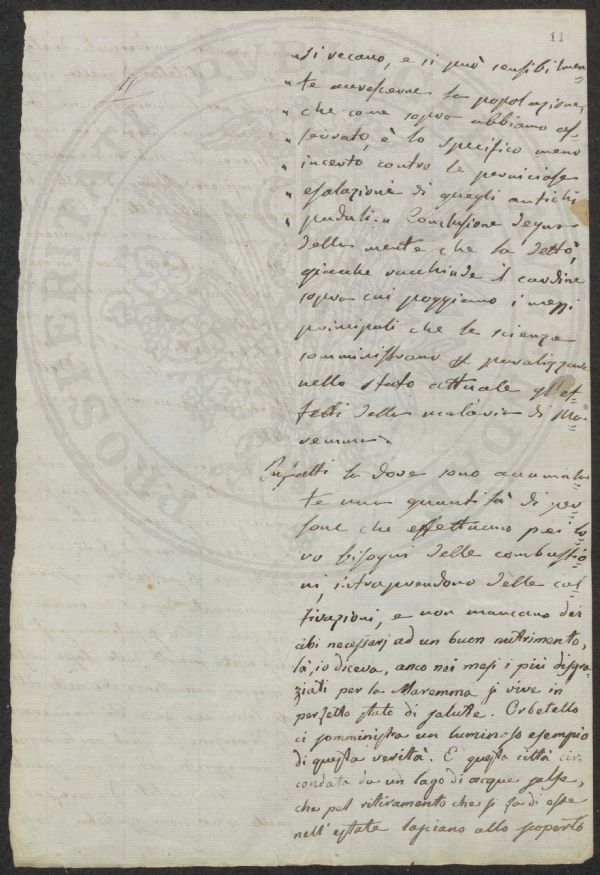 11
„ si recano, e si può sensibilmen-
„ te accrescerne la popolazione,
„ che come sopra abbiamo os
„ servato, è lo specifico meno
„ incerto contro le perniciose
„ esalazioni di quegli antichi
„ paduli. „ Conclusione degna
della mente che la dettò,
giacche racchiude il cardine
sopra cui poggiano i mezzi
principali che la scienza
somministrano paralizzare
nello stato attuale gl'ef-
fetti della malaria di Ma-
remma.
Infatti la dove sono accumula-
te una quantità di per-
sone che effettuano pei lo-
ro bisogni delle combustio-
ni, intraprendono delle col-
tivazioni, e non mancano dei
cibi necessarj ad un buon nutrimento,
là, io diceva, anco nei mesi i più disgra-
ziati per la Maremma si vive in
perfetto stato di salute. Orbetello
ci somministra un luminoso esempio
di questa verità. E' questa città cir-
condata da un lago di acque salse,
che pel ritiramento che si fa di esse
nell'estate lasciano allo scoperto